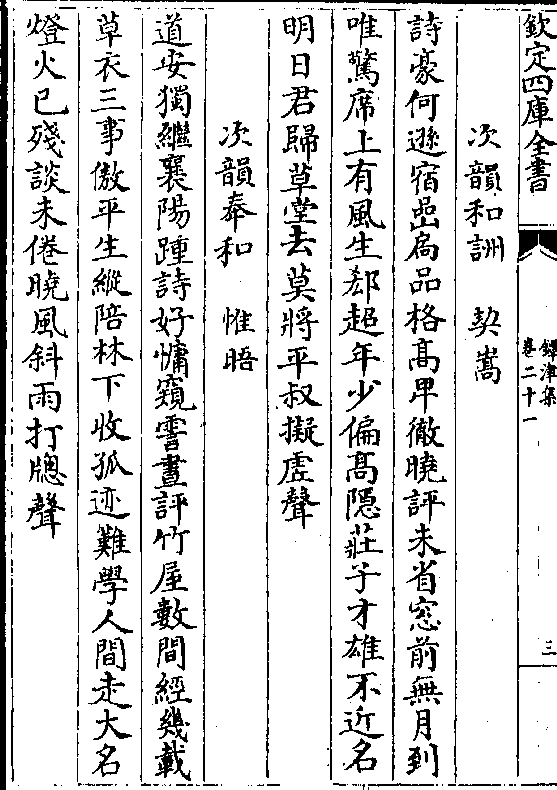 欽定四庫全書
鐔津集
卷二十一
三
次韻和詶　契嵩
詩豪何遜宿嵒扃品格髙卑徹曉評未省窓前無月到
唯驚席上有風生郄超年少偏髙隠莊子才雄不近名
明日君歸草堂去莫將平叔擬虛聲
次韻奉和　惟晤
道安獨繼襄陽踵詩好慵窺霅晝評竹屋數間經幾載
草衣三事傲平生縱陪林下收孤迹難學人間走大名
燈火已殘談未倦曉風斜雨打牕聲